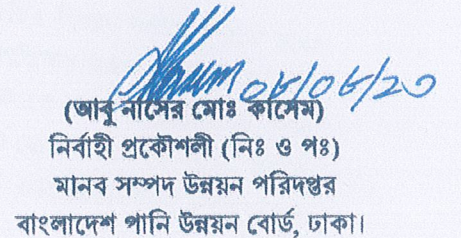 ০৮/০৬/২৩
(আবু নাসের মোঃ কাসেম)
নির্বাহী প্রকৌশলী (নিঃ ও পঃ)
মানব সম্পদ উন্নয়ন পরিদপ্তর
বাংলাদেশ পানি উন্নয়ন বোর্ড, ঢাকা।